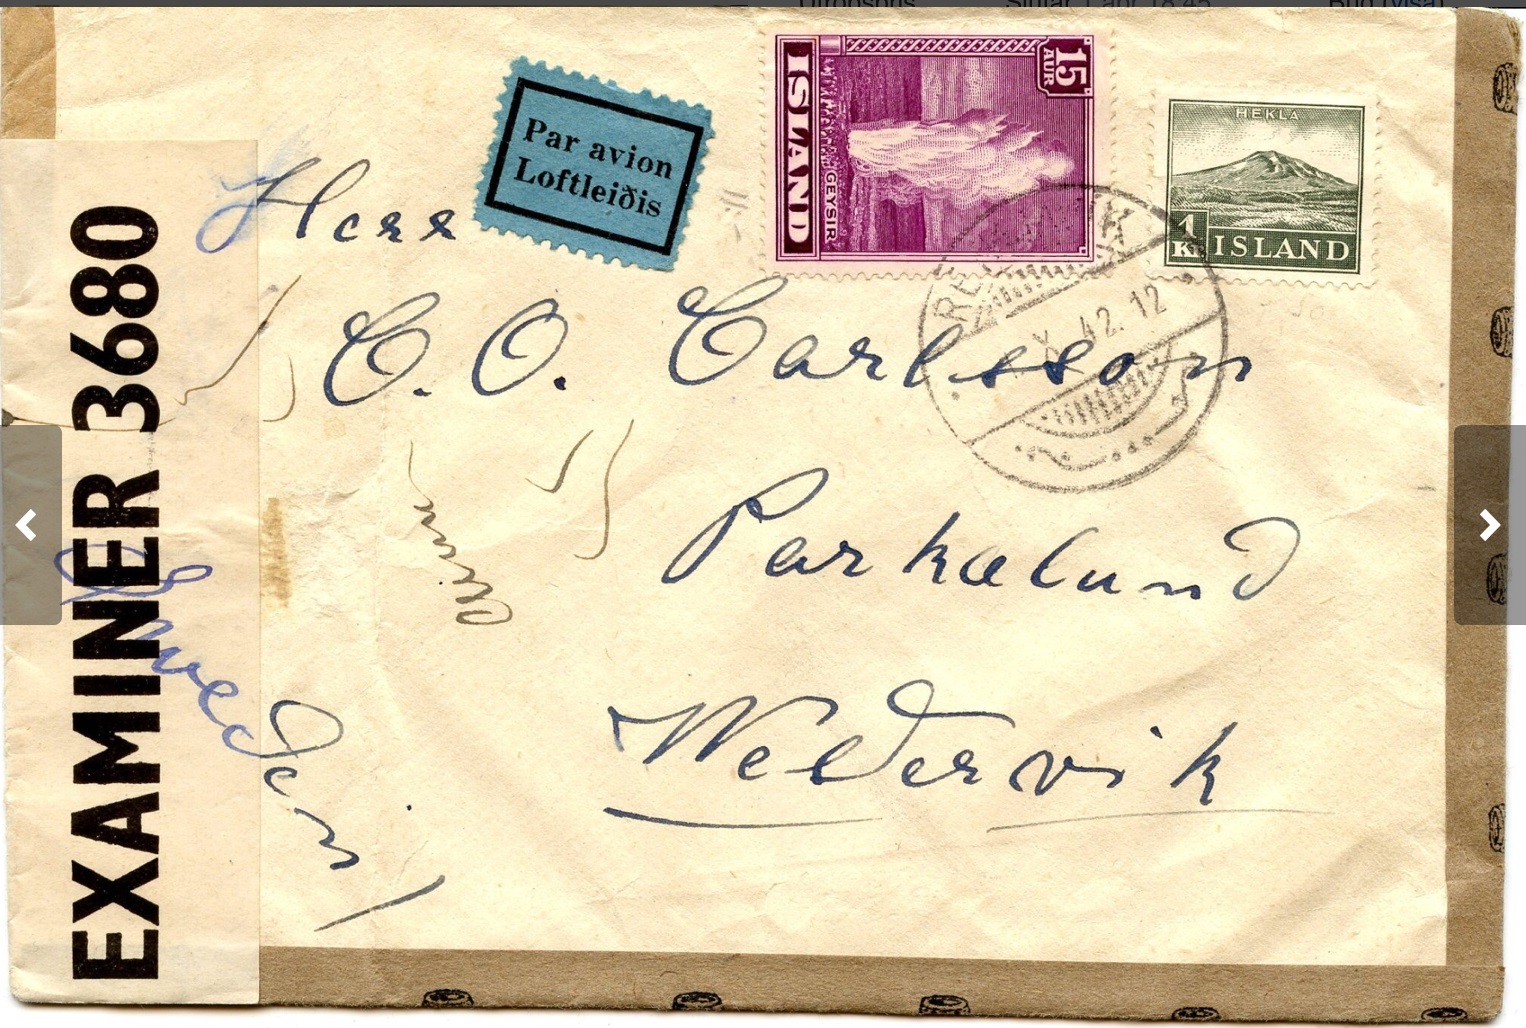 Par avion
Loftleiðis
15
AUR
ISLAND
GEYSIR
HEKLA
1
K
ISLAND
X 42. 12
EXAMINER 3680
Herr
C. O. Carlsson
Parkalund
Wedervik
Sweden